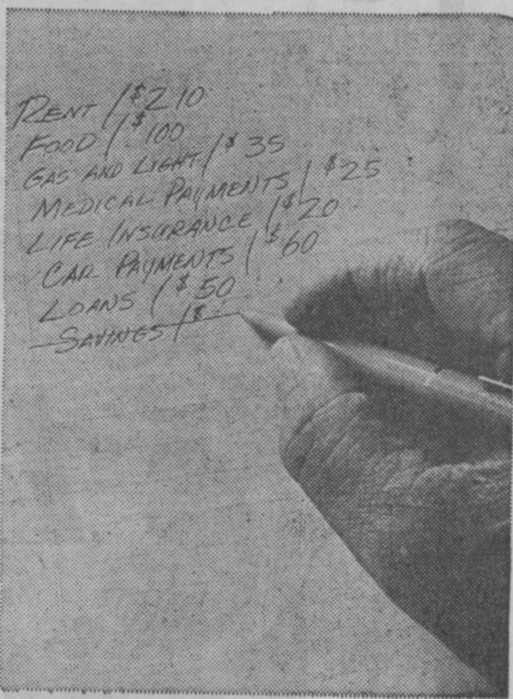 RENT / $210
FOOD / $100
GAS AND LIGHT / $35
MEDICAL PAYMENTS / $25
LIFE INSURANCE / $20
CAR PAYMENTS / $60
LOANS / $50
SAVINGS / $